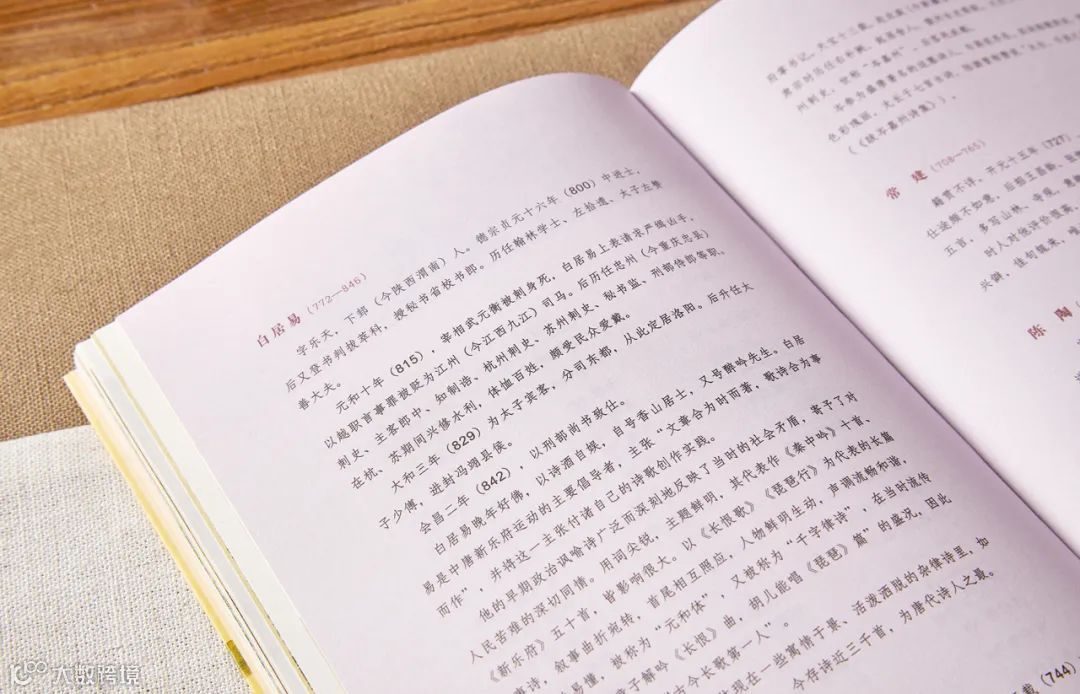 白居易（772—846）
字乐天，下邽（今陕西渭南）人。德宗贞元十六年（800）中进士，
后又登书判拔萃科，授秘书省校书郎。历任翰林学士、左拾遗、太子左赞
善大夫。
元和十年（815），宰相武元衡被刺身死，白居易上表请求严缉凶手，
以越职言事罪被贬为江州（今江西九江）司马。后历任忠州（今重庆忠县）
刺史、主客郎中、知制诰、杭州刺史、苏州刺史、秘书监、刑部侍郎等职。
在杭、苏期间兴修水利，体恤百姓，颇受民众爱戴。
大和三年（829）为太子宾客，分司东都，从此定居洛阳。后升任太
子少傅，进封冯翊县侯。
会昌二年（842），以刑部尚书致仕。
白居易晚年好佛，以诗酒自娱，自号香山居士，又号醉吟先生。白居
易是中唐新乐府运动的主要倡导者，主张“文章合为时而著，歌诗合为事
而作”，并将这一主张付诸自己的诗歌创作实践。
他的早期政治讽喻诗广泛而深刻地反映了当时的社会矛盾，寄予了对
人民苦难的深切同情。用词尖锐，主题鲜明，其代表作《秦中吟》十首、
《新乐府》五十首，皆影响很大。以《长恨歌》《琵琶行》为代表的长篇
事诗，叙事曲折宛转，首尾相互照应，人物鲜明生动，声调流畅和谐，
易懂，被称为“元和体”，又被称为“千字律诗”，在当时流传
童子解吟《长恨》曲，胡儿能唱《琵琶》篇”的盛况，因此
古今长歌第一人”。
现在一些寓情于景、活泼洒脱的杂律诗里，如
今存诗近三千首，为唐代诗人之最。
（744）
州刺史，世称“岑嘉州”
色彩瑰丽，尤长于七言古诗
常建（708—765）
籍贯不详。开元十五年（727）
仕途颇不如意，后
五首，多写山林、寺观，意
时人对他评价很
兴僻，佳句辄来，唯
陈陶
大数跨境